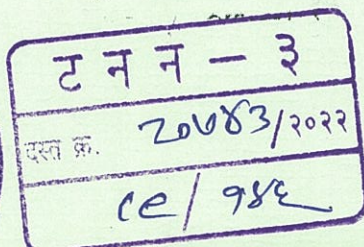 ट न न – ३
दस्त क्र. २०७४३/२०२२
८९/ १४६